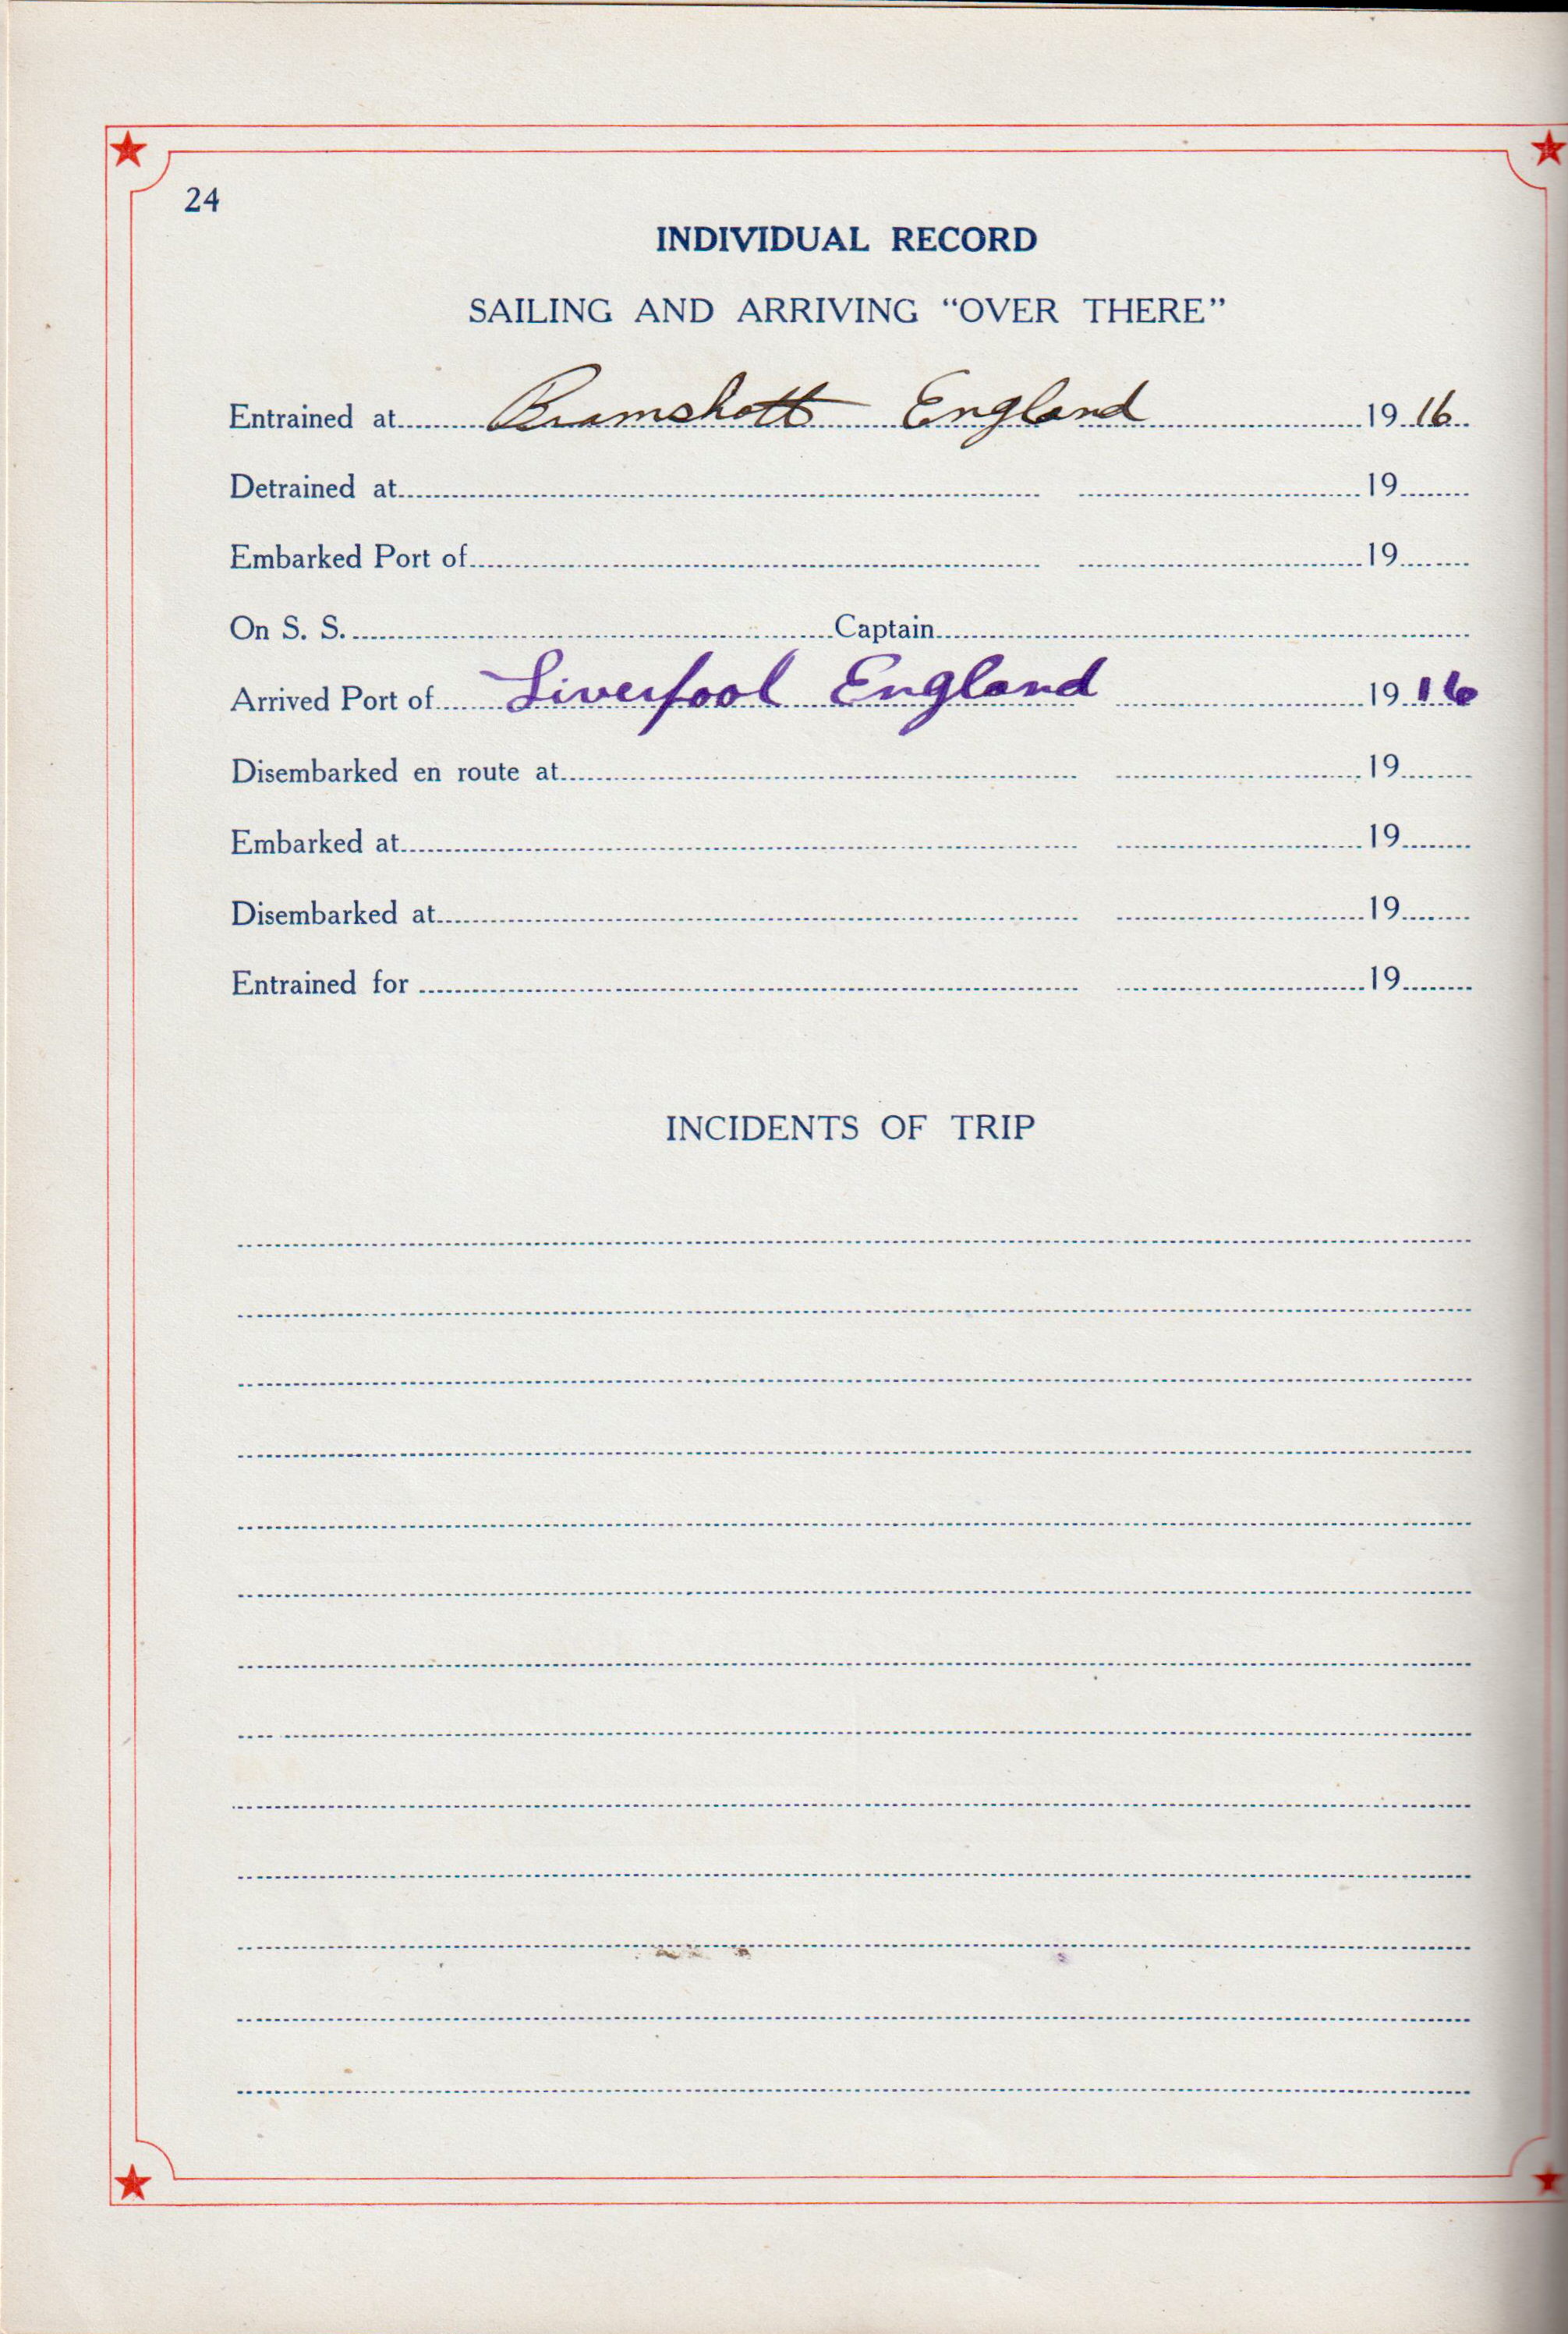 24
INDIVIDUAL RECORD
SAILING AND ARRIVING “OVER THERE”
Entrained at Bramshott England 1916
Detrained at 19
Embarked Port of 19
On S. S. Captain
Arrived Port of Liverpool England 1916
Disembarked en route at 19
Embarked at 19
Disembarked at 19
Entrained for 19
INCIDENTS OF TRIP